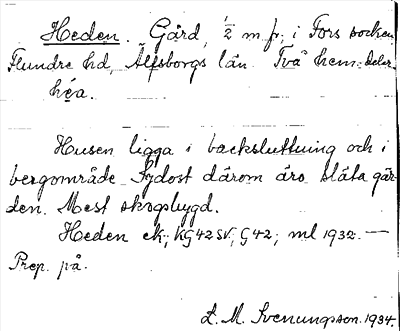 Heden. Gård, ½ m fr, i Fors socken
Flundre hd, Älfsborgs län. Två hem.delar.
héa.
Husen ligga i backsluttning och i
bergområde. Sydost därom äro släta går-
den. Mest skogsbygd.
Heden ek; KG 42 SV; G 42; ml 1932. —
Prep. på.
L. M. Svenungsson. 1934.